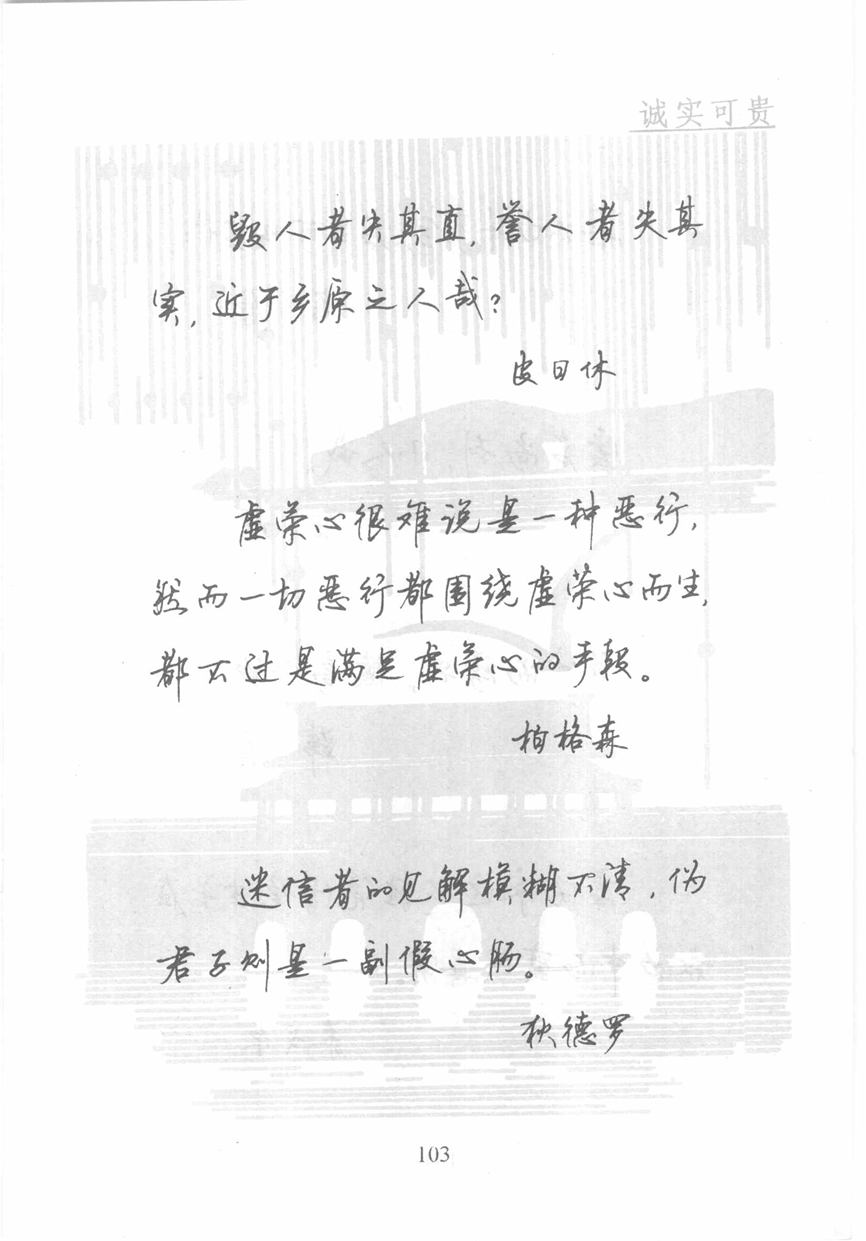 诚实可贵
毁人者失其直,誉人者失其
实,近于乡原之人哉?
皮日休
虚荣心很难说是一种恶行,
然而一切恶行都围绕虚荣心而生,
都不过是满足虚荣心的手段。
柏格森
迷信者的见解模糊不清,伪
君子则是一副假心肠。
狄德罗
103